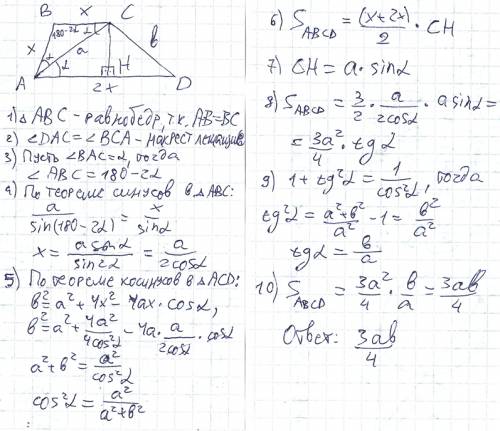 B x C
180-2α α
x a b
α α H
A 2x D
1) Δ ABC - равнобедр, т.к. AB=BC
2) ∠DAC=∠BCA - накрест лежащие
3) Пусть ∠BAC=α, тогда
∠ABC=180-2α
4) По теореме синусов в ΔABC:
a/sin(180-2α) = x/sinα
x = a sinα/sin2α = a/2cosα
5) По теореме косинусов в ΔACD:
b²=a²+4x²-4ax·cosα,
b²=a²+4a²/4cos²α-4a·a/2cosα·cosα
a²+b²=a²/cos²α
cos²α=a²/a²+b²
6) S ABCD = (x+2x)/2 · CH
7) CH = a·sinα
8) S ABCD = 3/2 · a/2cosα · a sinα =
= 3a²/4 · tgα
9) 1+tg²α = 1/cos²α, тогда
tg²α = a²+b²/a² - 1 = b²/a²
tgα = b/a
10) S ABCD = 3a²/4 · b/a = 3ab/4
Ответ: 3ab/4